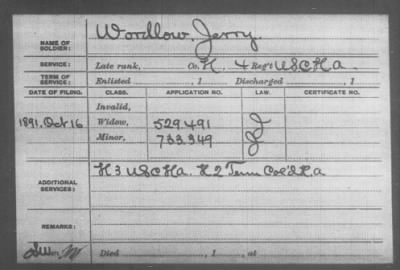 NAME OF SOLDIER: Wordlow, Jerry.
SERVICE: Late rank, Co. H. 4 Reg't U.S.C.H.a.
TERM OF SERVICE: Enlisted , 1 Discharged , 1
DATE OF FILING. CLASS. APPLICATION NO. LAW. CERTIFICATE NO.
Invalid,
1891. Oct 16 Widow, 529 491
Minor, 733.349
ADDITIONAL SERVICES: H 3 U.S.C.H.a. H 2 Tenn Col'd H.a
REMARKS:
Died , 1 , at